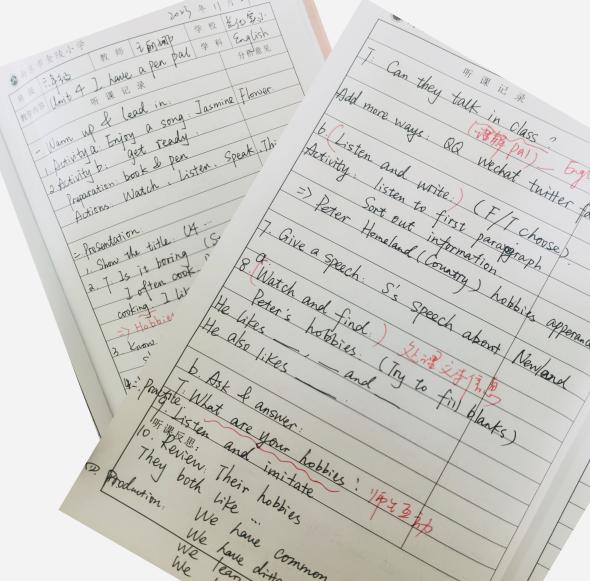 2023 年 11 月
金陵小学
教师
学校
学科 English
Unit 4 I have a pen pal
听课记录
分析意见
一. Warm up & lead in.
1. Activity a. Enjoy a song: Jasmine Flower
2. Activity b. get ready.
Preparation: book & pen
Actions: Watch, Listen, Speak, Thi
二. Presentation
1. Show the title. U4 ...
2. T: Is is boring
I often cook
cooking. I lik
=> Hobbies
3. Know
听课记录
T: Can they talk in class?
(课解 pal) — Engl
Add more ways: QQ wechat twitter fa
6. (Listen and write.) (F/T choose)
Activity: listen to first paragraph
Sort out information
=> Peter Homeland (Country) hobbies apperan
7. Give a speech: S's speech about Newland
8. a. (Watch and find.) 处理文本信息
Peter's hobbies: (Try to fill blanks)
He likes ___, ___ and ___
He also likes ___
b. Ask & answer:
T: What are your hobbies? 师生互动
三. Practice
9. Listen and imitate
听课反思:
10. Review: Their hobbies
They both like ...
四. Production:
We have common
We have diffe
We lear
We